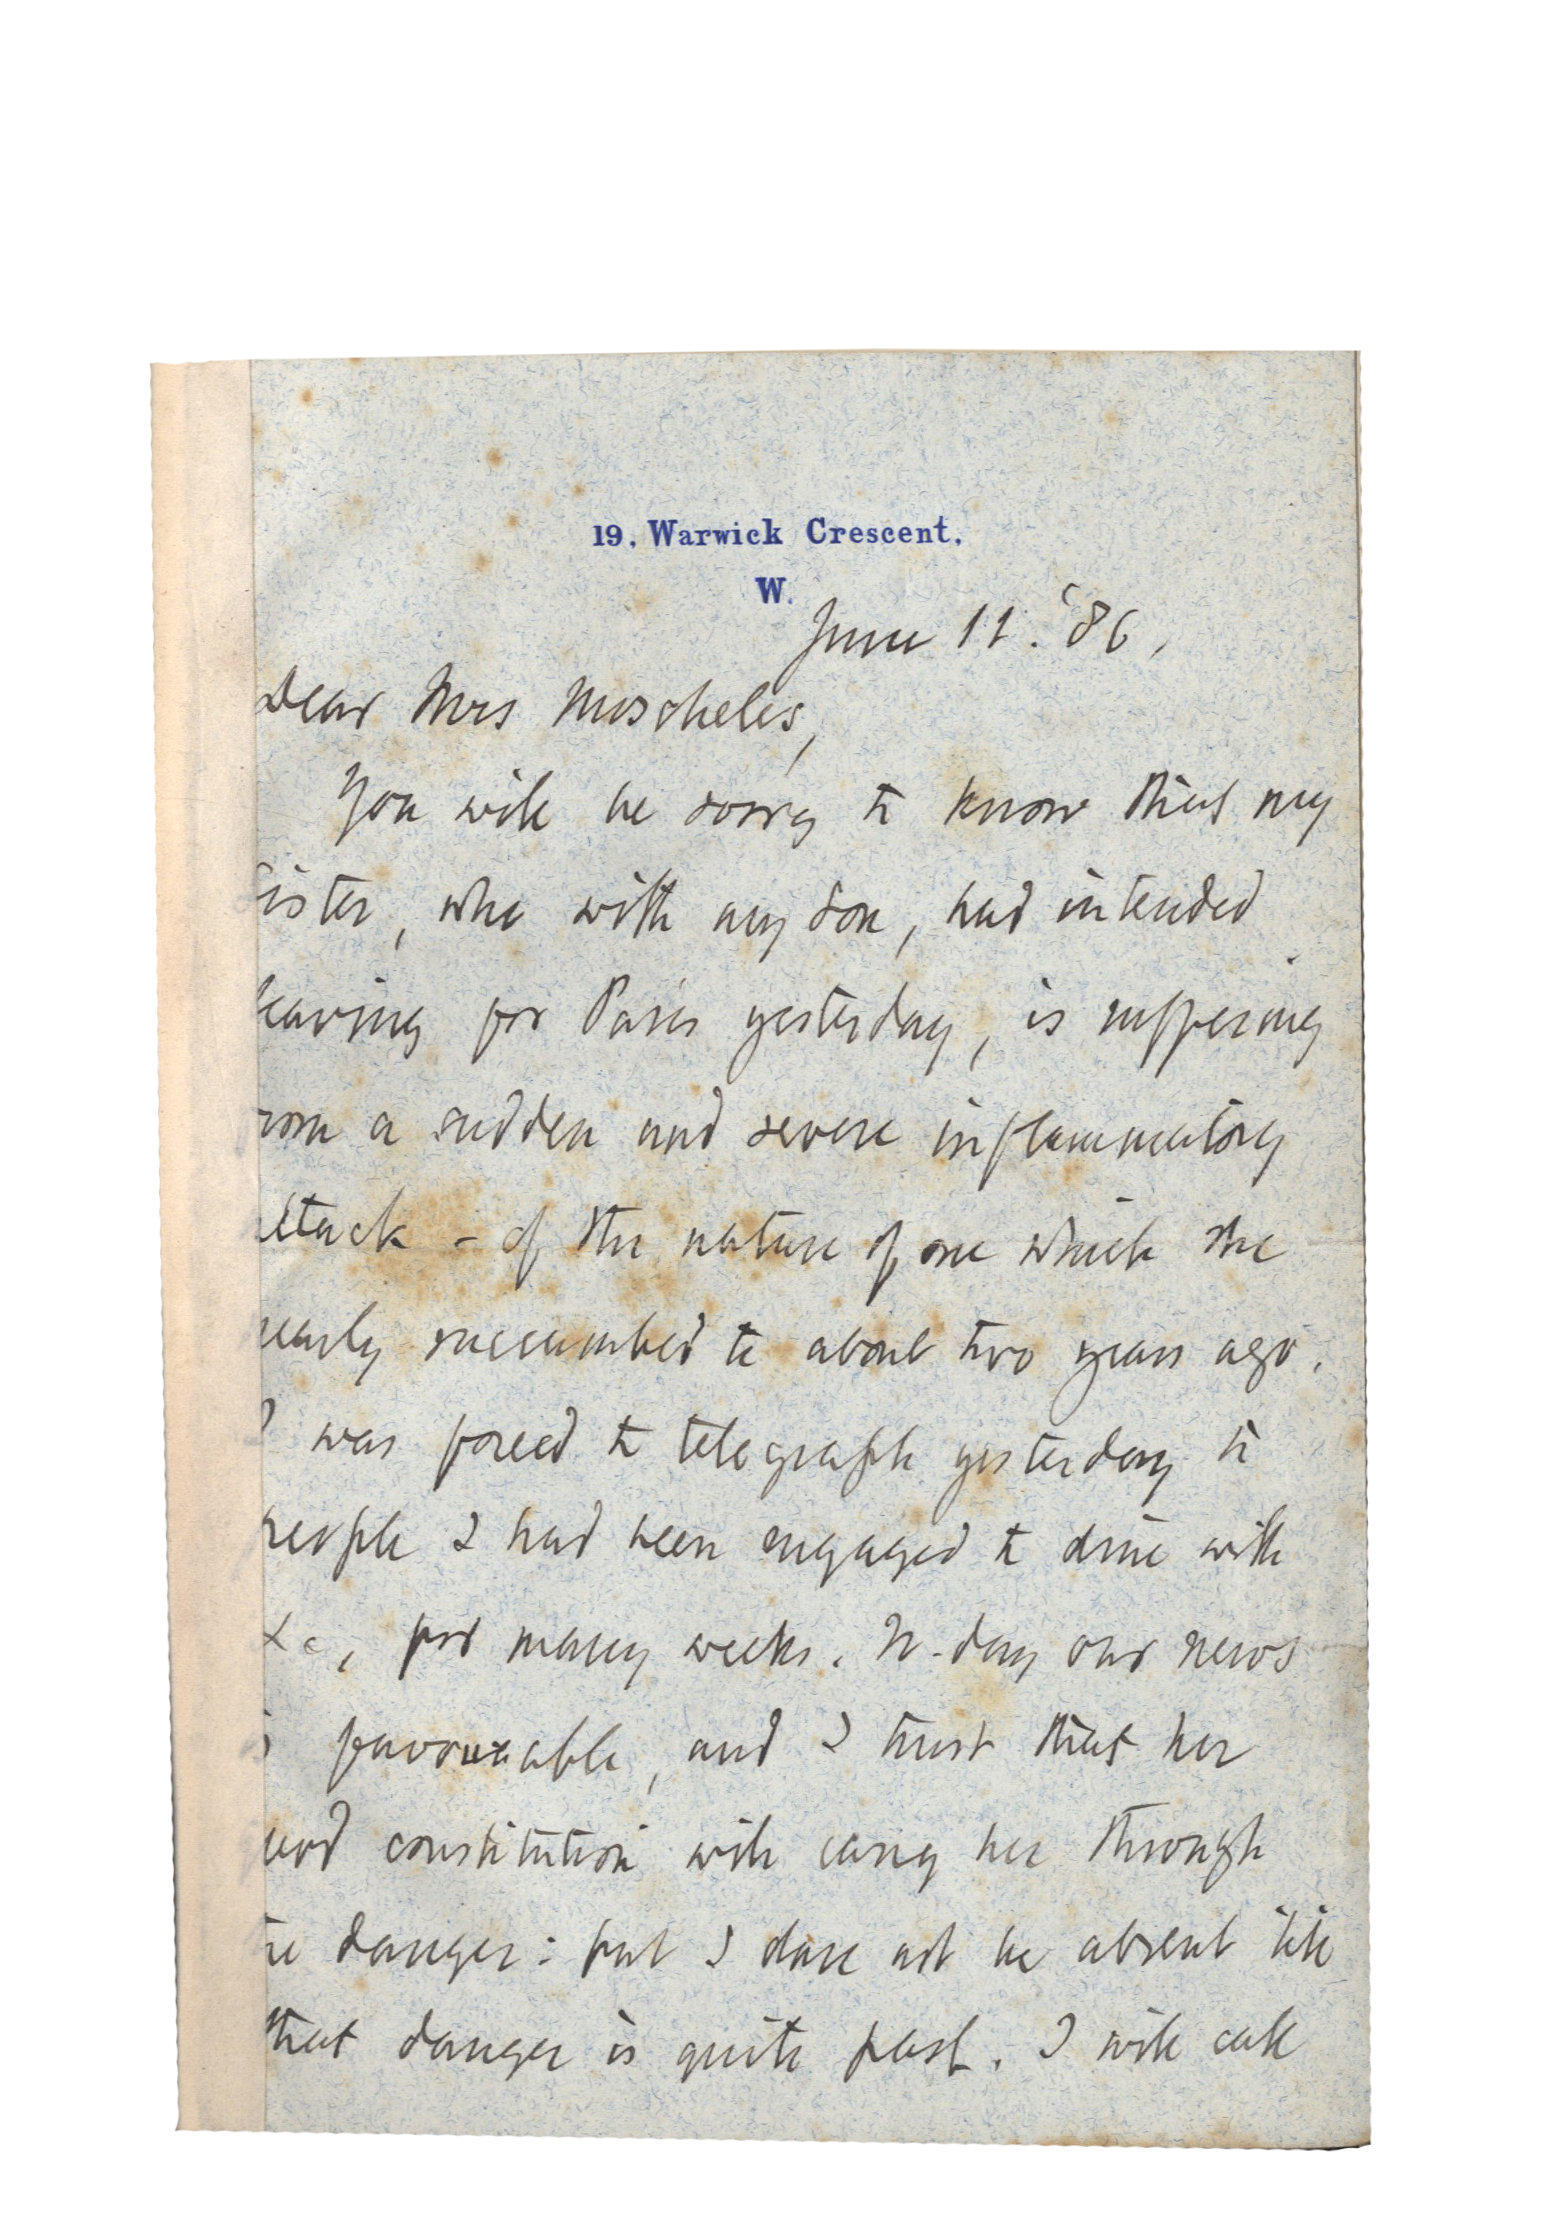 19. Warwick Crescent.
W.
June 11. '86.
Dear Mrs Moscheles,
You will be sorry to know that my
sister, who with my son, had intended
leaving for Paris yesterday, is suffering
from a sudden and severe inflammatory
attack - of the nature of one which she
nearly succumbed to about two years ago.
I was forced to telegraph yesterday to
people I had been engaged to dine with
&c, for many weeks. To-day our news
is favourable, and I trust that her
good constitution will carry her through
the danger: but I dare not be absent till
that danger is quite past. I will call